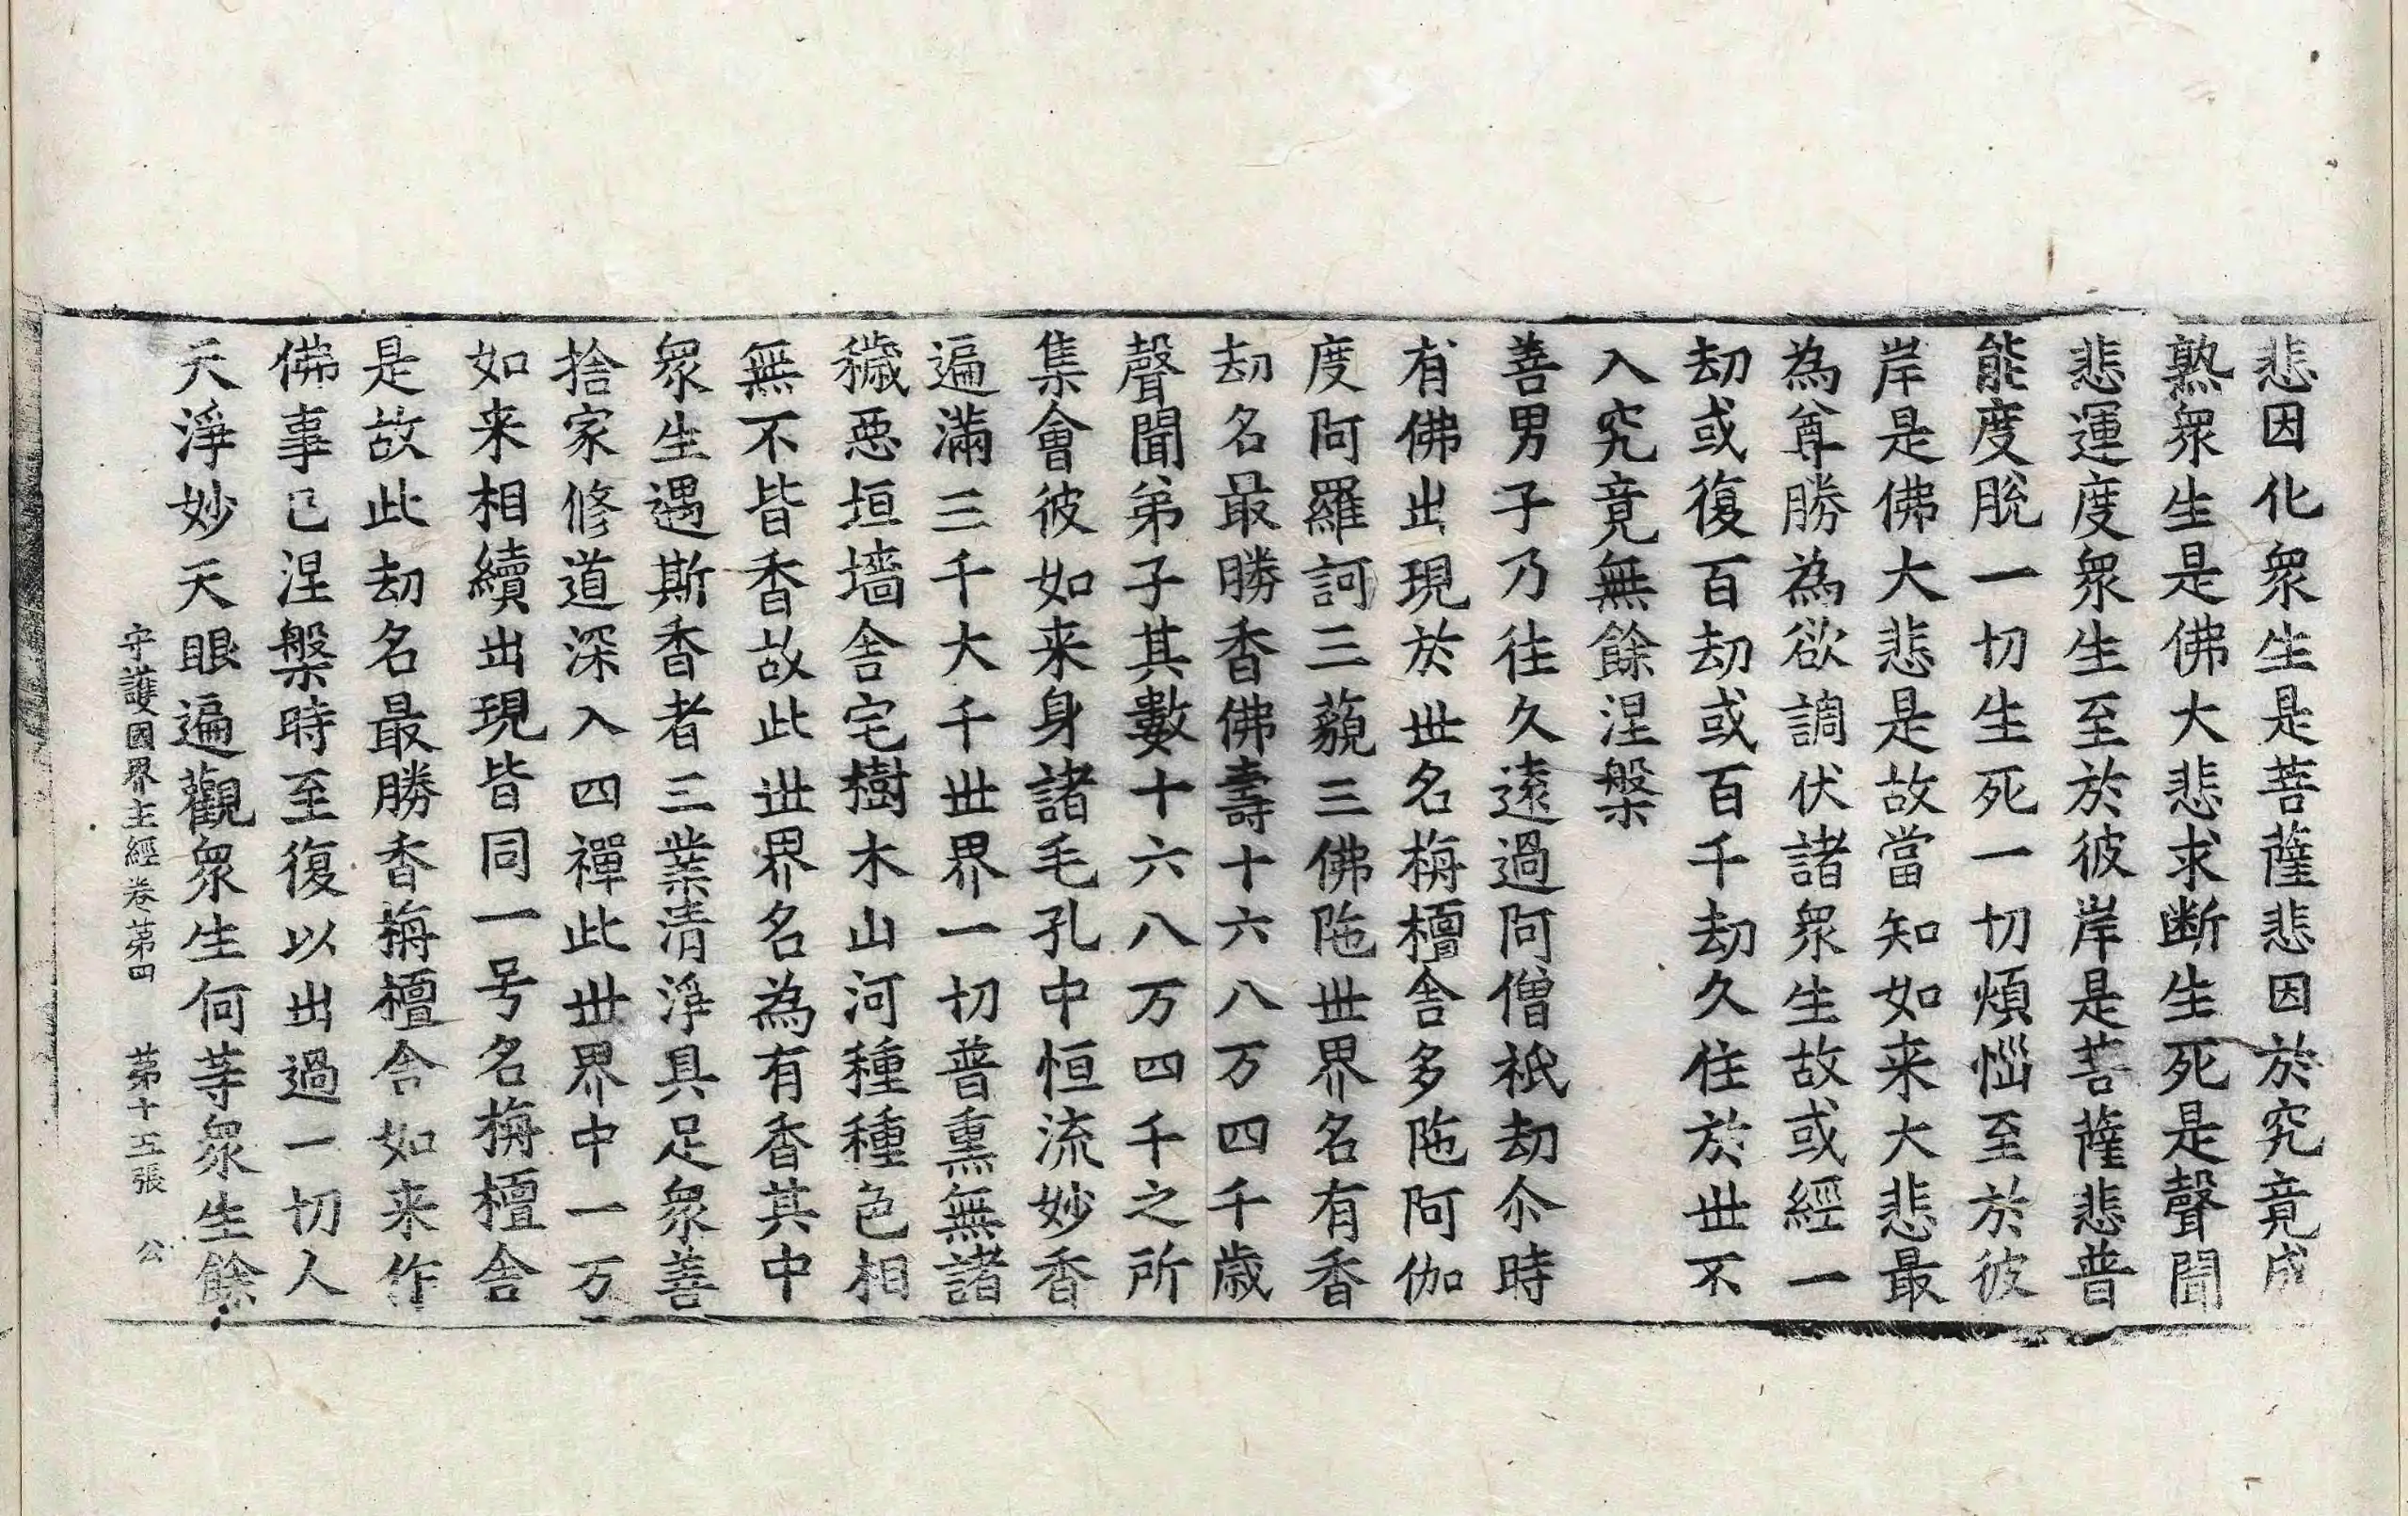 悲因化衆生是菩薩悲因於究竟成
熟衆生是佛大悲求断生死是聲聞
悲運度衆生至於彼岸是菩薩悲普
能度脫一切生死一切煩惱至於彼
岸是佛大悲是故當知如来大悲最
為尊勝為欲調伏諸衆生故或經一
劫或復百劫或百千劫久住於世不
入究竟無餘涅槃
善男子乃往久遠過阿僧祇劫尒時
有佛出現於世名栴檀舍多陁阿伽
度阿羅訶三藐三佛陁世界名有香
劫名最勝香佛壽十六八万四千歳
聲聞弟子其數十六八万四千之所
集會彼如来身諸毛孔中恒流妙香
遍滿三千大千世界一切普熏無諸
穢惡垣墻舍宅樹木山河種種色相
無不皆香故此世界名為有香其中
衆生遇斯香者三業清淨具足衆善
捨家修道深入四禪此世界中一万
如来相續出現皆同一号名栴檀舍
是故此劫名最勝香栴檀舍如来作
佛事已涅槃時至復以出過一切人
天淨妙天眼遍觀衆生何等衆生餘
守護國界主經卷第四 第十五張 公